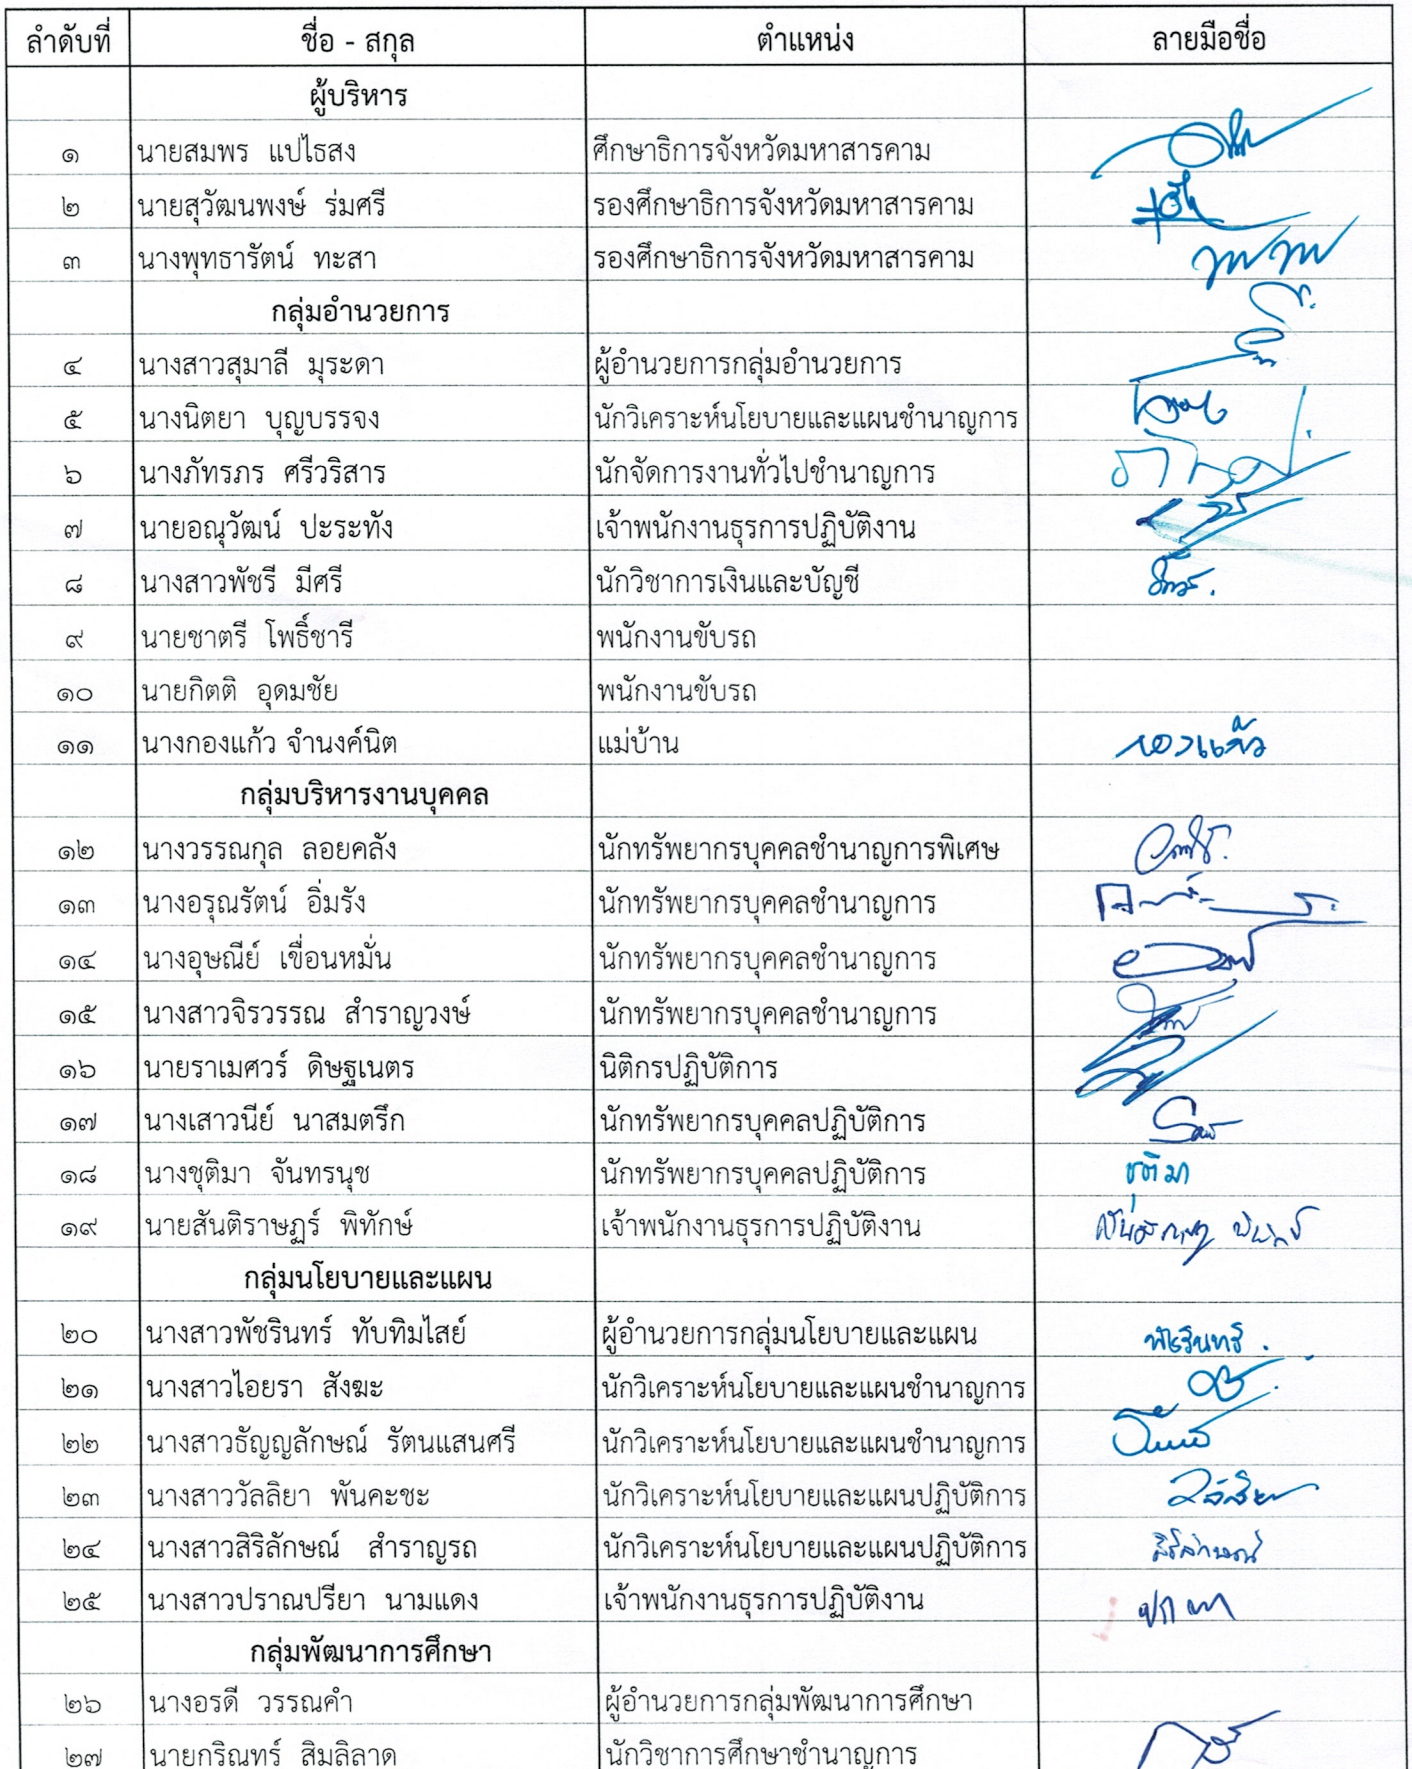 ลำดับที่ ชื่อ - สกุล ตำแหน่ง ลายมือชื่อ
ผู้บริหาร
๑ นายสมพร แปไธสง ศึกษาธิการจังหวัดมหาสารคาม
๒ นายสุวัฒนพงษ์ ร่มศรี รองศึกษาธิการจังหวัดมหาสารคาม
๓ นางพุทธารัตน์ ทะสา รองศึกษาธิการจังหวัดมหาสารคาม
กลุ่มอำนวยการ
๔ นางสาวสุมาลี มุระดา ผู้อำนวยการกลุ่มอำนวยการ
๕ นางนิตยา บุญบรรจง นักวิเคราะห์นโยบายและแผนชำนาญการ
๖ นางภัทรภร ศรีวริสาร นักจัดการงานทั่วไปชำนาญการ
๗ นายอณุวัฒน์ ปะระทัง เจ้าพนักงานธุรการปฏิบัติงาน
๘ นางสาวพัชรี มีศรี นักวิชาการเงินและบัญชี
๙ นายชาตรี โพธิ์ชารี พนักงานขับรถ
๑๐ นายกิตติ อุดมชัย พนักงานขับรถ
๑๑ นางกองแก้ว จำนงค์นิต แม่บ้าน กองแก้ว
กลุ่มบริหารงานบุคคล
๑๒ นางวรรณกุล ลอยคลัง นักทรัพยากรบุคคลชำนาญการพิเศษ
๑๓ นางอรุณรัตน์ อิ่มรัง นักทรัพยากรบุคคลชำนาญการ
๑๔ นางอุษณีย์ เขื่อนหมั่น นักทรัพยากรบุคคลชำนาญการ
๑๕ นางสาวจิรวรรณ สำราญวงษ์ นักทรัพยากรบุคคลชำนาญการ
๑๖ นายราเมศวร์ ดิษฐเนตร นิติกรปฏิบัติการ
๑๗ นางเสาวนีย์ นาสมตรึก นักทรัพยากรบุคคลปฏิบัติการ
๑๘ นางชุติมา จันทรนุช นักทรัพยากรบุคคลปฏิบัติการ ชุติมา
๑๙ นายสันติราษฏร์ พิทักษ์ เจ้าพนักงานธุรการปฏิบัติงาน
กลุ่มนโยบายและแผน
๒๐ นางสาวพัชรินทร์ ทับทิมไสย์ ผู้อำนวยการกลุ่มนโยบายและแผน พัชรินทร์
๒๑ นางสาวไอยรา สังฆะ นักวิเคราะห์นโยบายและแผนชำนาญการ
๒๒ นางสาวธัญญลักษณ์ รัตนแสนศรี นักวิเคราะห์นโยบายและแผนชำนาญการ
๒๓ นางสาววัลลิยา พันคะชะ นักวิเคราะห์นโยบายและแผนปฏิบัติการ วัลลิยา
๒๔ นางสาวสิริลักษณ์ สำราญรถ นักวิเคราะห์นโยบายและแผนปฏิบัติการ สิริลักษณ์
๒๕ นางสาวปราณปรียา นามแดง เจ้าพนักงานธุรการปฏิบัติงาน
กลุ่มพัฒนาการศึกษา
๒๖ นางอรดี วรรณคำ ผู้อำนวยการกลุ่มพัฒนาการศึกษา
๒๗ นายกริณทร์ สิมลิลาด นักวิชาการศึกษาชำนาญการ